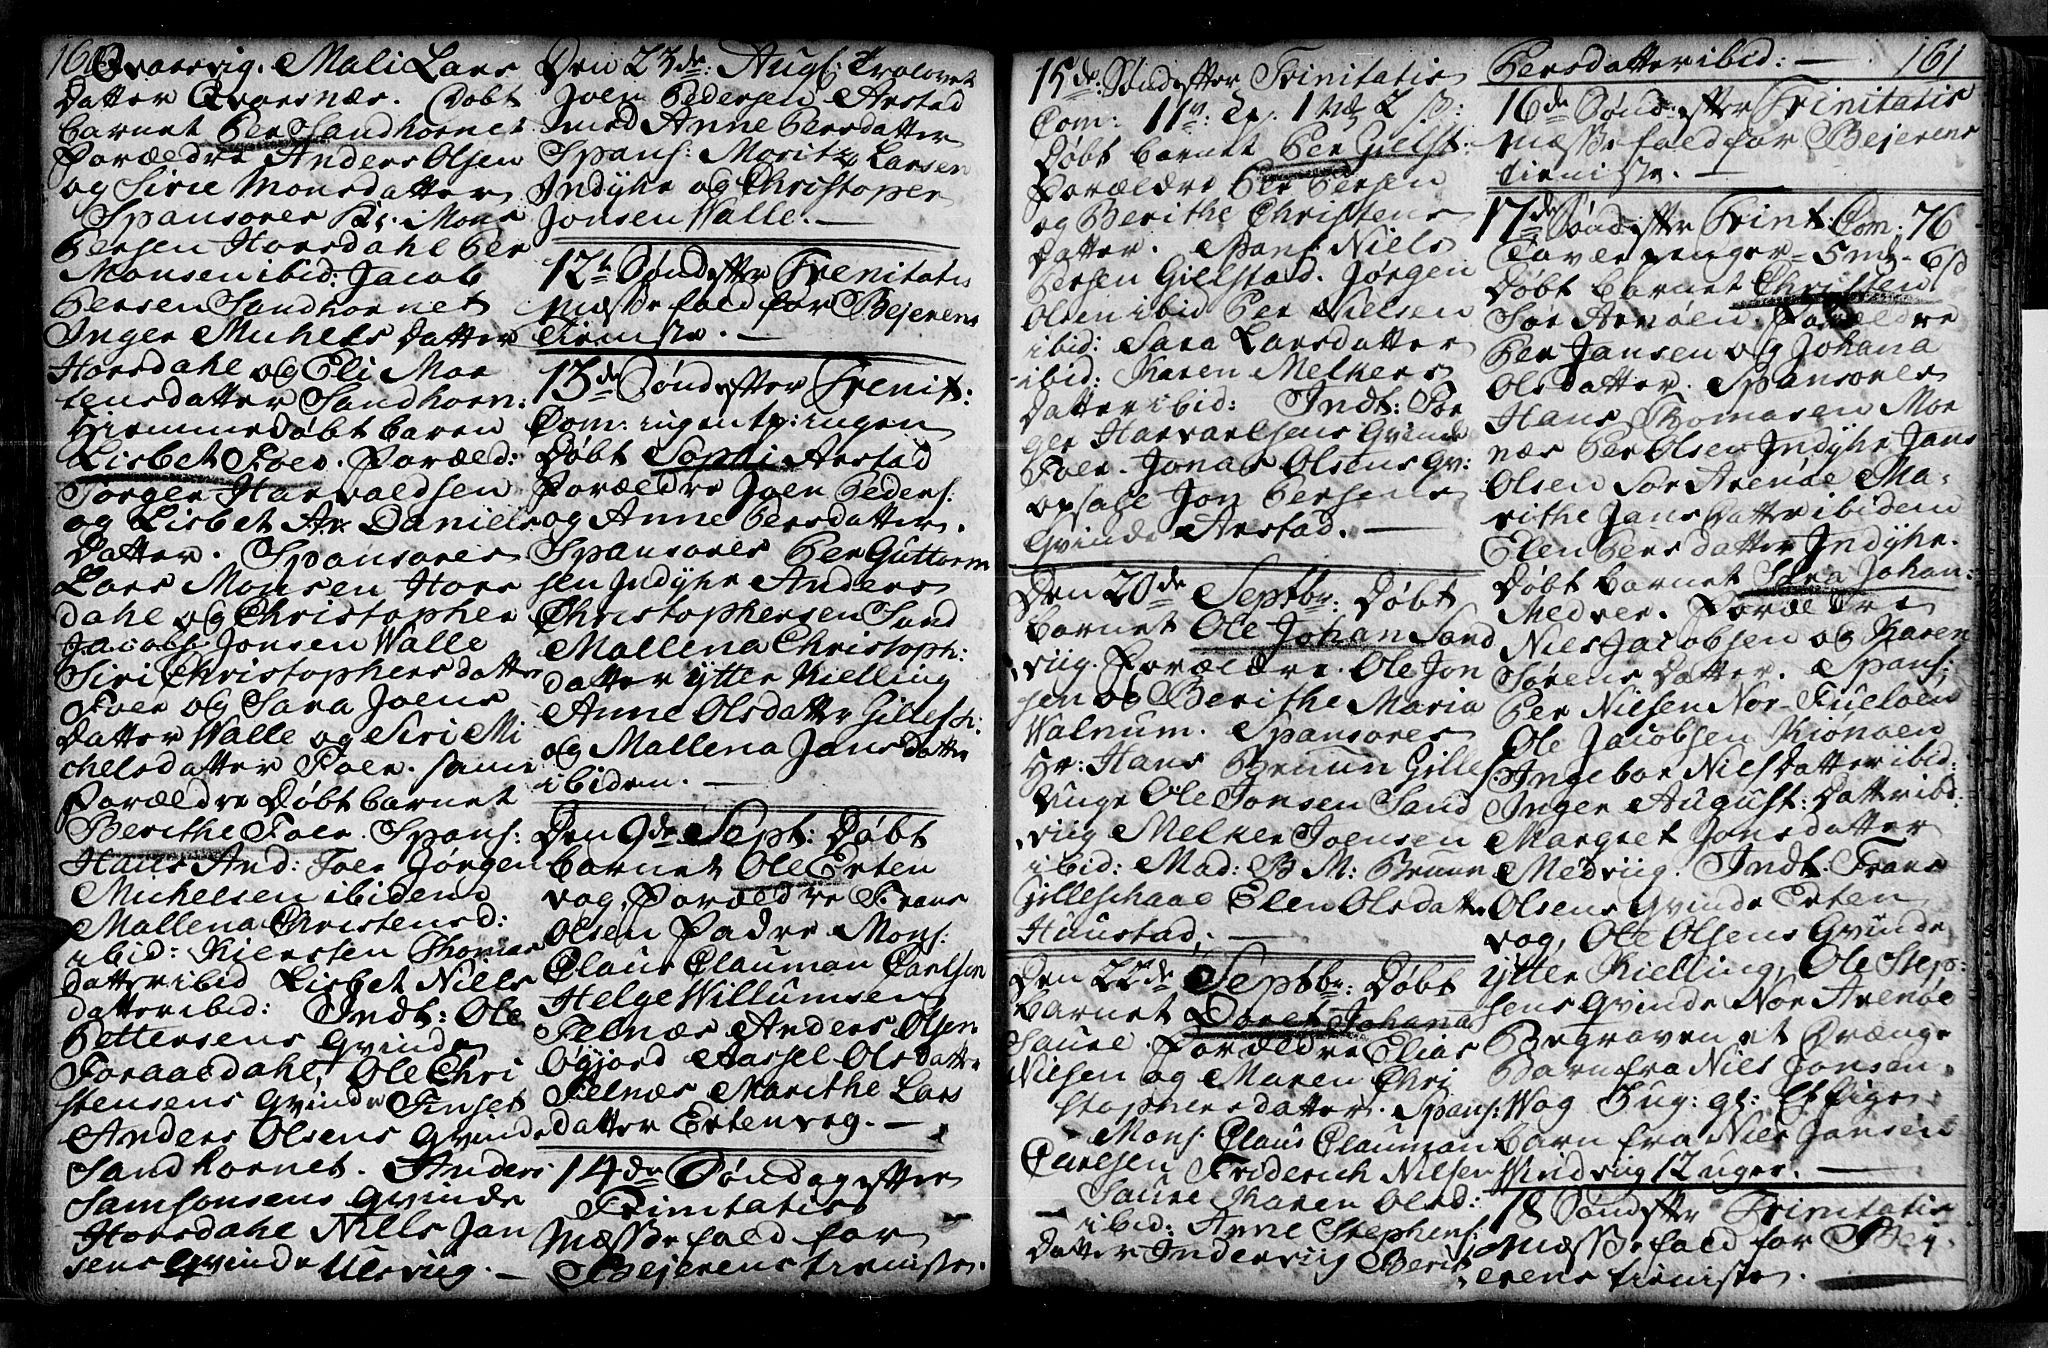 160
Qvarsvig. Mali Lars
Datter Qvarsnæs. Døbt
barnet Per Sandhornet
Forældre Anders Olsen
og Sirie Monsdatter
Spansores Mons
Persen Horsdahl Per
Monsen ibid: Jacob
Persen Sandhornet
Inger Michels datter
Horsdahl og Eli Mor
tensdatter Sandhorn:
Hiemmedøbt baren
Lisbet Foer. Foræld:
Jørgen Harvaldsen
og Lisbet An Daniels
Datter. Spansores
Lars Monsen Hors
dahl og Christopher
Jonsen Walle
Siri Christophersdatter
Foer og Sara Joens
datter Walle og Siri Mi
chelsdatter Foer. samme
Forældre Døbt barnet
Berithe Foer. Spans:
Hans And: Foer Jørgen
Michelsen ibidem
Mallena Christensd:
ibid: Kiersten Thomas
datter ibid Lisbet Niels
datter ibid: Indt: Ole
Pettersens Qvinde
Foraasdahl, Ole Chri
stensens Qvinde Finset
Anders Olsens Qvinde
Sandhornet. Anders
Samsonsens Qvinde
Horsdahl Niels Jan
sens Qvinde Ulsvüg. —
Den 23de: Aug: Trolovet
Joen Pedersen Arstad
med Anne Persdatter
Spans: Moritz Larsen
Indÿhr og Christopher
Jonsen Walle. —
12te Sønd efter Trenitatis
Mæssefald for Bejerens
tieniste. —
13de Sønd efter Trenit:
Com: ingen tp: ingen
Døbt Sophi Arstad
Forældre Joen Peders:
og Anne Persdatter.
Spansores Per Guttorm
sen Indÿhr Anders
Christophersen Sand
Mallena Christoph:
datter ÿtter Kielling
Anne Olsdatter Gillesk:
og Mallena Jansdatter
ibidem. —
Den 9de Sept: Døbt
barnet Ole Erten
vog, Forældre Frans
Olsen Padre Mons:
Claus Clauman Carlsen
Helge Willumsen
Felnæs Anders Olsen
Ogjord Aassel Olsdatter
Felnæs Marithe Lars
datter Ertenvog. —
14de Søndag efter
Trinitatis
Mæssefald for
Bejerens tieniste.
15de: Sønd efter Trinitatis
Com: 11 tp. 1 mk 2 ß:
Døbt barnet Per Gillst:
Forældre Per Persen
og Berithe Christens
datter. Spans: Niels
Persen Gielstad. Jørgen
Olsen ibid Per Nielsen
ibid: Sara Larsdatter
ibid: Karen Melkers
datter ibid: Indt: Jør
gen Harvarlsens Qvinde
Foer. Jonas Olsens Qv:
opsall Jon Persens
Qvinde Arstad. —
Den 20de Septbr: Døbt
barnet Ole Johan Sand
viig. Forældre. Ole Jon
sen og Berithe Maria
Walnum. Spansores
Hr: Hans Bruun Gilles
Unge Ole Jonsen Sand
viig Melker Joensen
ibid: Mad: B M: Bruun
Gilleschaal Elen Olsdatter
Huustad. —
Den 22de Septbr: Døbt
barnet Doret Johana
Saure. Forældre Elias
Nilsen og Maren Chri
stophersdatter. Spans:
Mons: Claus Clauman
Carlsen Friderich Nilsen
Saure Karen Olsd:
ibid: Anne Stephens:
datter Indervüg Berit
Persdatter ibid: — 161
16de Sønd: efter Trinitatis
Mæssefald for Bejerens
tieniste. —
17de Sønd efter Trint: Com: 76
Tavlepenger = 5 mk - 6 ß
Døbt barnet Christen
Sør Arnøen. Forældre
Per Jansen og Johana
Olsdatter. Spansores
Hans Thomasen Mor
næs Per Olsen Indÿhr Jans
Olsen Sør Arenøe Ma-
rithe Jans datter ibidem
Elen Pers datter Indÿhr.
Døbt barnet Sara Johan:
Medvei. Forældre
Niels Jacobsen og Karen
Sørens datter. Spans:
Per Nielsen Nor-Fueløen
Ole Jacobsen Kiønøen
Ingebor Nielsdatter ibid:
Inger August: Datt: ibd:
Margret Jonsdatter
Medviig. Indt. Frans
Olsens Qvinde Erten
vog, Ole Olsens Qvinde
ÿtter Kielling, Ole Step:
sens Qvinde Nor Arenøe
Begraven et Drænge
Barn fra Niels Jonsen
Wog
barn fra Niels Jansen
Windviig 12 uger. —
18 Sønd efter Trinitatis
Mæssefald for Bej
erens tieniste.